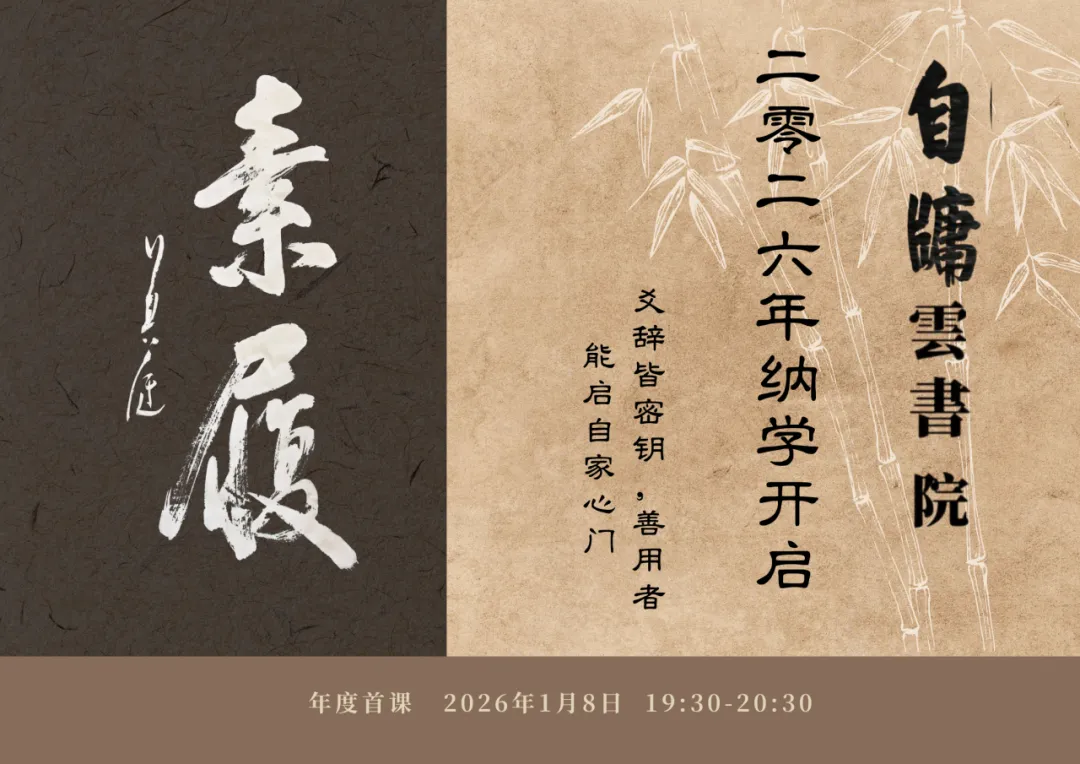 自牗雲書院
二零二六年纳学开启
爻辞皆密钥，善用者
能启自家心门
素履
年度首课 2026年1月8日 19:30-20:30